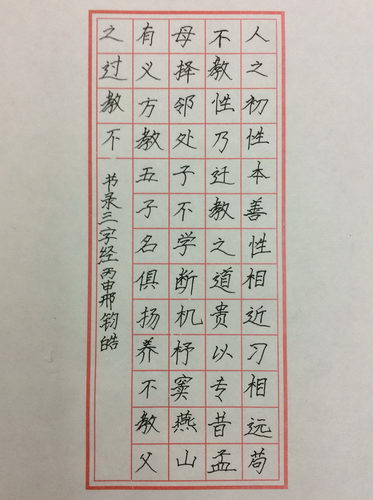 人之初性本善性相近习相远苟
不教性乃迁教之道贵以专昔孟
母择邻处子不学断机杼窦燕山
有义方教五子名俱扬养不教父
之过教不
书录三字经丙申邢钧皓